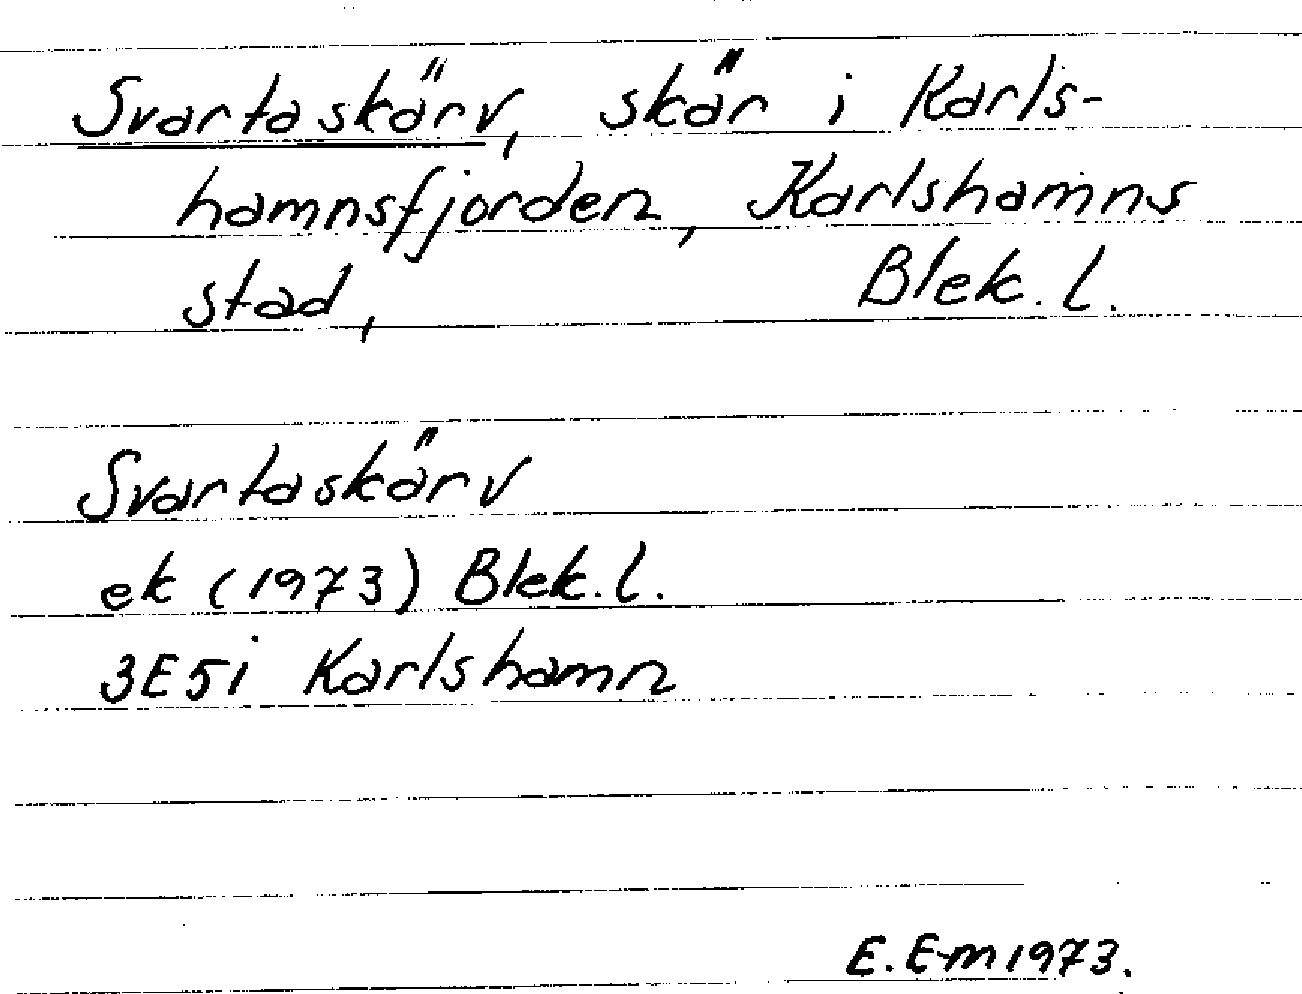 Svartaskärv, skär i Karls-
hamnsfjorden, Karlshamns
stad, Blek. l.
Svartaskärv
ek (1973) Blek. l.
3E5i Karlshamn
E. E-m 1973.